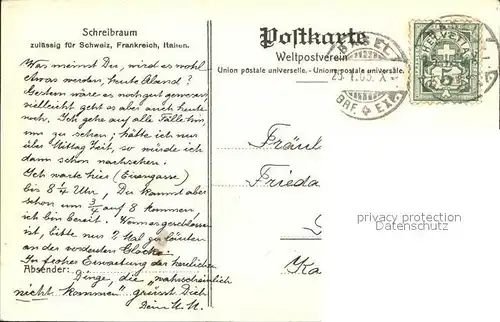 Schreibraum
zulässig für Schweiz, Frankreich, Italien.
Postkarte
Weltpostverein
Union postale universelle. - Unione postale universale.
BASEL
BRF. EXP.
HELVETIA
5
Was meinst Du, wird es wohl
etwas werden, heute Abend?
Gestern wäre es noch gut gewesen,
vielleicht geht es aber auch heute
noch. Ich gehe auf alle Fälle hin,
um zu sehen; hätte ich nur
über Mittag Zeit, so würde ich
dann schon nachsehen.
Ich warte hier (Eisengasse)
bis 8 1/4 Uhr, Du kannst aber
schon um 3/4 auf 8 kommen,
ich bin bereit. Wenn geschlossen
ist, bitte nur 2 Mal zu läuten
an der vordersten Glocke.
In froher Erwartung der herrlichen
Absender: Dinge, die "wahrscheinlich
nicht kommen" grüsst Dich
Dein
Fräul
Frieda
Ka
propriété privée
Datenschutz